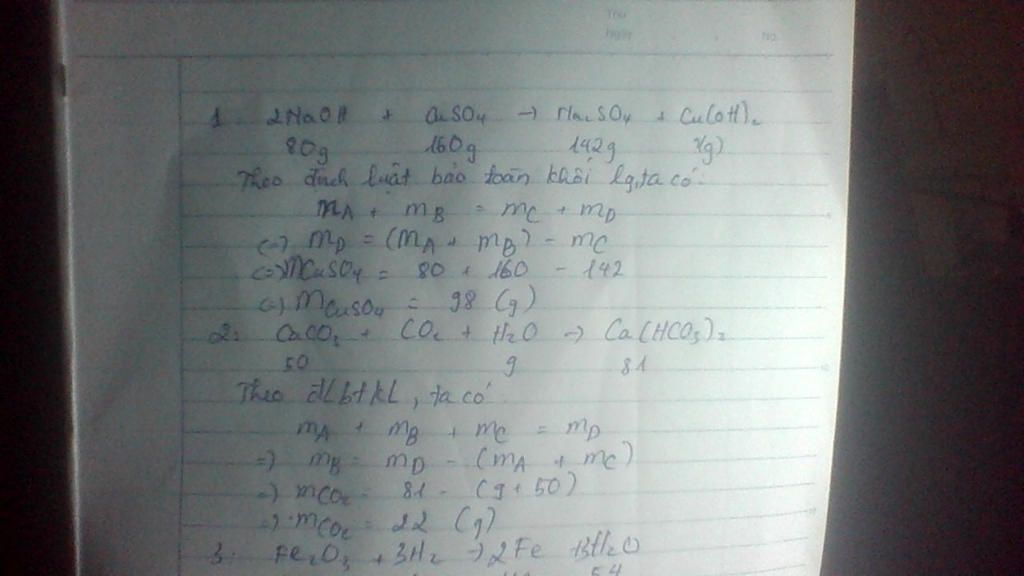 Thứ
Ngày No.
1. 2NaOH + CuSO4 → Na2SO4 + Cu(OH)2
80g 160g 142g x(g)
Theo định luật bảo toàn khối lg, ta có:
mA + mB = mC + mD
(=) mD = (mA + mB) - mC
(=) mCuSO4 = 80 + 160 - 142
(=) mCuSO4 = 98 (g)
2: CaCO3 + CO2 + H2O → Ca(HCO3)2
50 9 81
Theo đLbtKL, ta có
mA + mB + mC = mD
=) mB = mD - (mA + mC)
=) mCO2 = 81 - (9 + 50)
=) mCO2 = 22 (g)
3: Fe2O3 + 3H2 → 2Fe + 3H2O
54